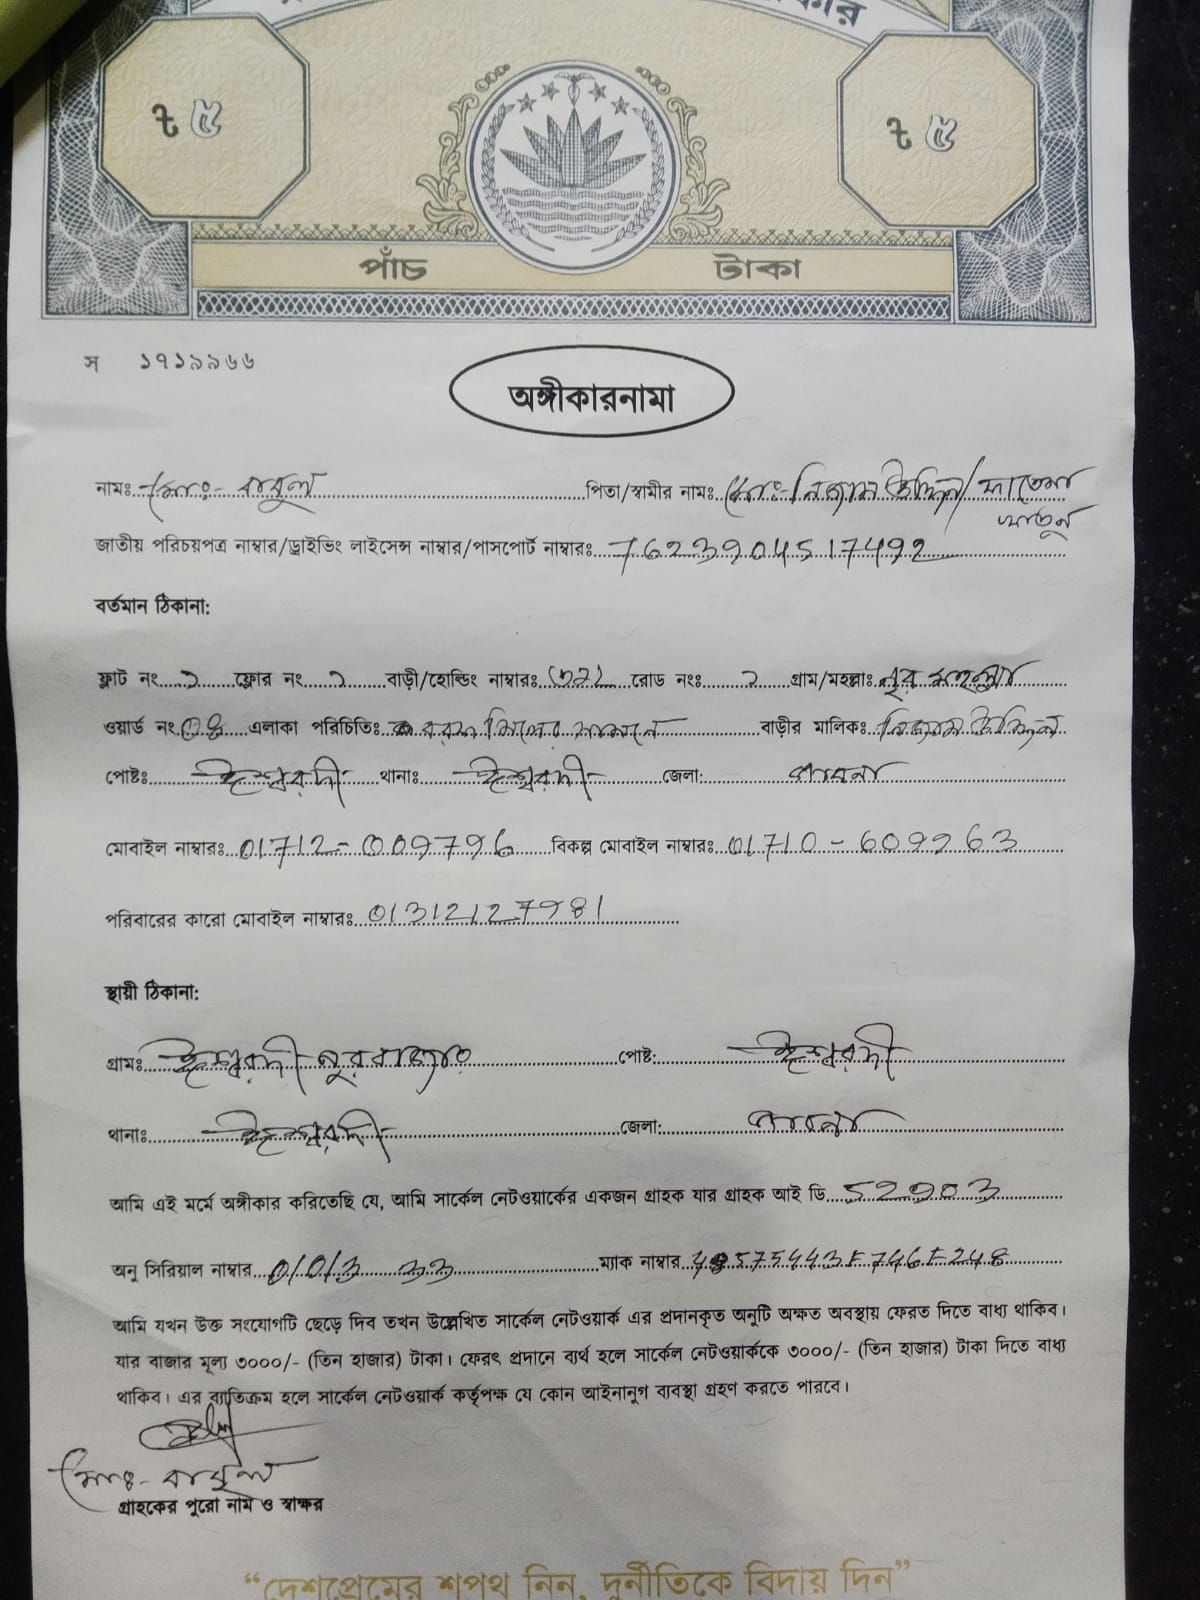 ৳ ৫
৳ ৫
পাঁচ টাকা
স ১৭১৯৯৬৬
অঙ্গীকারনামা
নামঃ মোঃ- বাবুল পিতা/স্বামীর নামঃ মোঃ- নিজাম উদ্দিন/ ফাতেমা
খাতুন
জাতীয় পরিচয়পত্র নাম্বার/ড্রাইভিং লাইসেন্স নাম্বার/পাসপোর্ট নাম্বারঃ 7623904517492
বর্তমান ঠিকানা:
ফ্লাট নং ফ্লোর নং বাড়ী/হোল্ডিং নাম্বারঃ রোড নংঃ গ্রাম/মহল্লাঃ নূর মহল্লা
ওয়ার্ড নং ০৪ এলাকা পরিচিতিঃ বরফ মিলের সামনে বাড়ীর মালিকঃ নিজাম উদ্দিন
পোষ্টঃ ঈশ্বরদী থানাঃ ঈশ্বরদী জেলা: পাবনা
মোবাইল নাম্বারঃ 01712-009796 বিকল্প মোবাইল নাম্বারঃ 01710-609963
পরিবারের কারো মোবাইল নাম্বারঃ 01312127981
স্থায়ী ঠিকানা:
গ্রামঃ ঈশ্বরদী পোষ্ট: ঈশ্বরদী
থানাঃ ঈশ্বরদী জেলা: পাবনা
আমি এই মর্মে অঙ্গীকার করিতেছি যে, আমি সার্কেল নেটওয়ার্কের একজন গ্রাহক যার গ্রাহক আই ডি 52903
অনু সিরিয়াল নাম্বার ম্যাক নাম্বার
আমি যখন উক্ত সংযোগটি ছেড়ে দিব তখন উল্লেখিত সার্কেল নেটওয়ার্ক এর প্রদানকৃত অনুটি অক্ষত অবস্থায় ফেরত দিতে বাধ্য থাকিব।
যার বাজার মূল্য ৩০০০/- (তিন হাজার) টাকা। ফেরৎ প্রদানে ব্যর্থ হলে সার্কেল নেটওয়ার্ককে ৩০০০/- (তিন হাজার) টাকা দিতে বাধ্য
থাকিব। এর ব্যতিক্রম হলে সার্কেল নেটওয়ার্ক কর্তৃপক্ষ যে কোন আইনানুগ ব্যবস্থা গ্রহণ করতে পারবে।
মোঃ- বাবুল
গ্রাহকের পুরো নাম ও স্বাক্ষর
“দেশপ্রেমের শপথ নিন, দুর্নীতিকে বিদায় দিন”